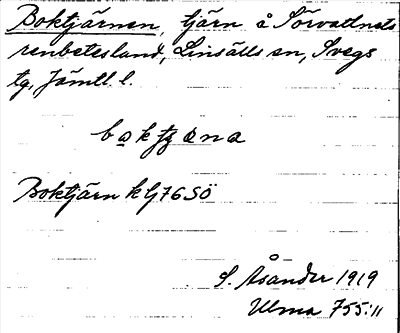 Boktjärnen, tjärn å Sörvattnets
renbetesland, Linsälls sn, Svegs
tg, Jämtl. l.
Boktjärn k Lj 76 SÖ
S. Åsander 1919
Ulma 755:11